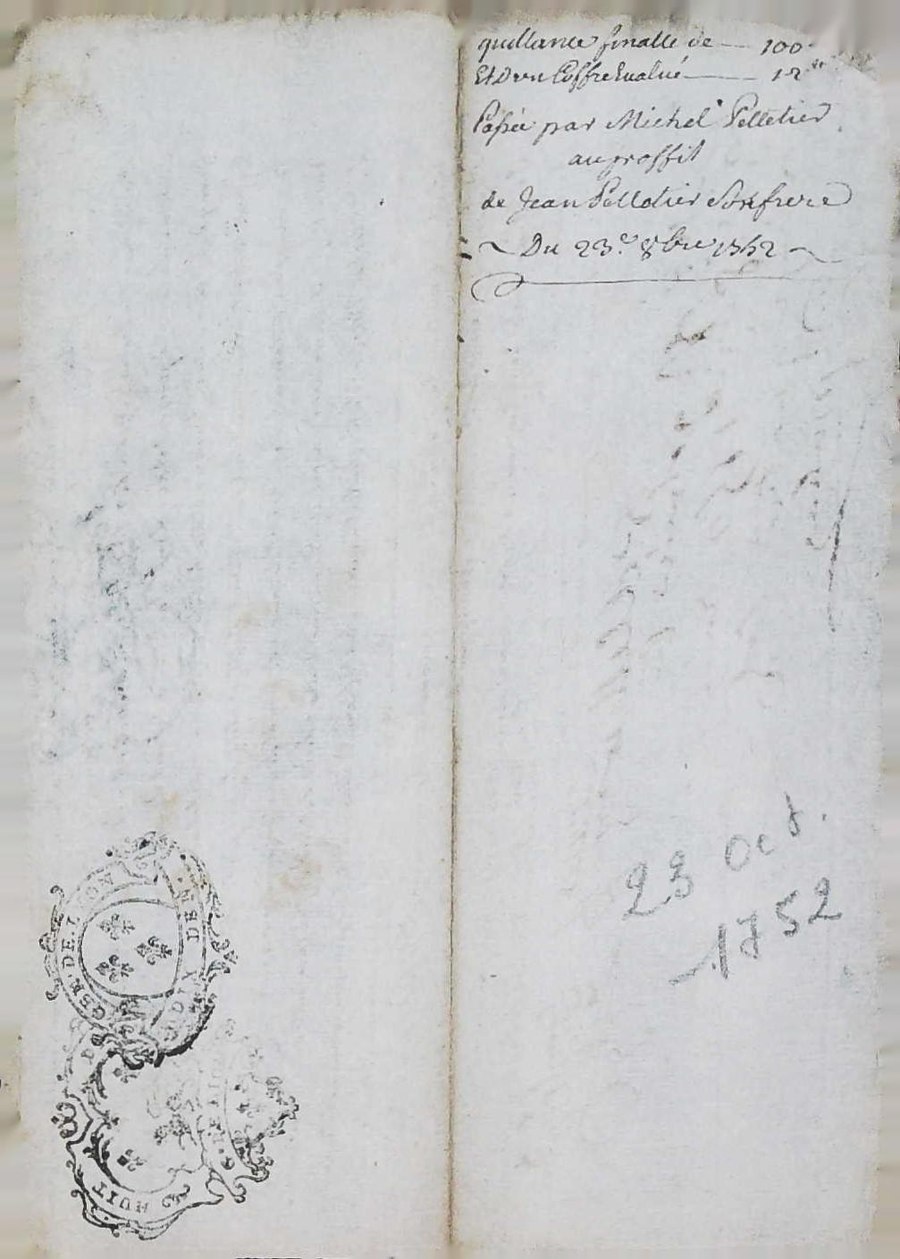 quittance finalle de — 100ᵗᵗ
Et D'un Coffre Evalué — 12ᵗᵗ
Passée par Michel Pelletier
au proffit
de Jean Pelletier Son frere
~ Du 23.ᵉ 8bre 1752 ~
23 Oct.
1752
GEN. DE. LYON
DIX DEN.
HUIT